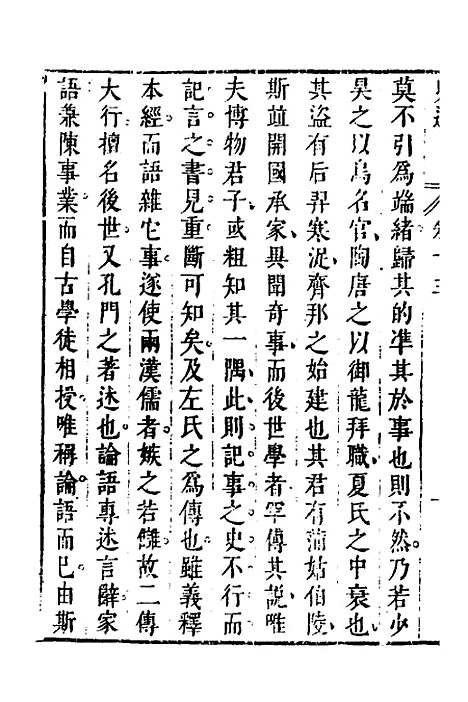 莫不引為端緒歸其的準其於事也則不然乃若少
昊之以鳥名官陶唐之以御龍拜職夏氏之中衰也
其盜有后羿寒浞齊邦之始建也其君有蒲姑伯陵
斯並開國承家異聞奇事而後世學者罕傳其說唯
夫博物君子或粗知其一隅此則記事之史不行而
記言之書見重斷可知矣及左氏之為傳也雖義釋
本經而語雜它事遂使兩漢儒者嫉之若讎故二傳
大行擅名後世又孔門之著述也論語專述言辭家
語兼陳事業而自古學徒相授唯稱論語而已由斯